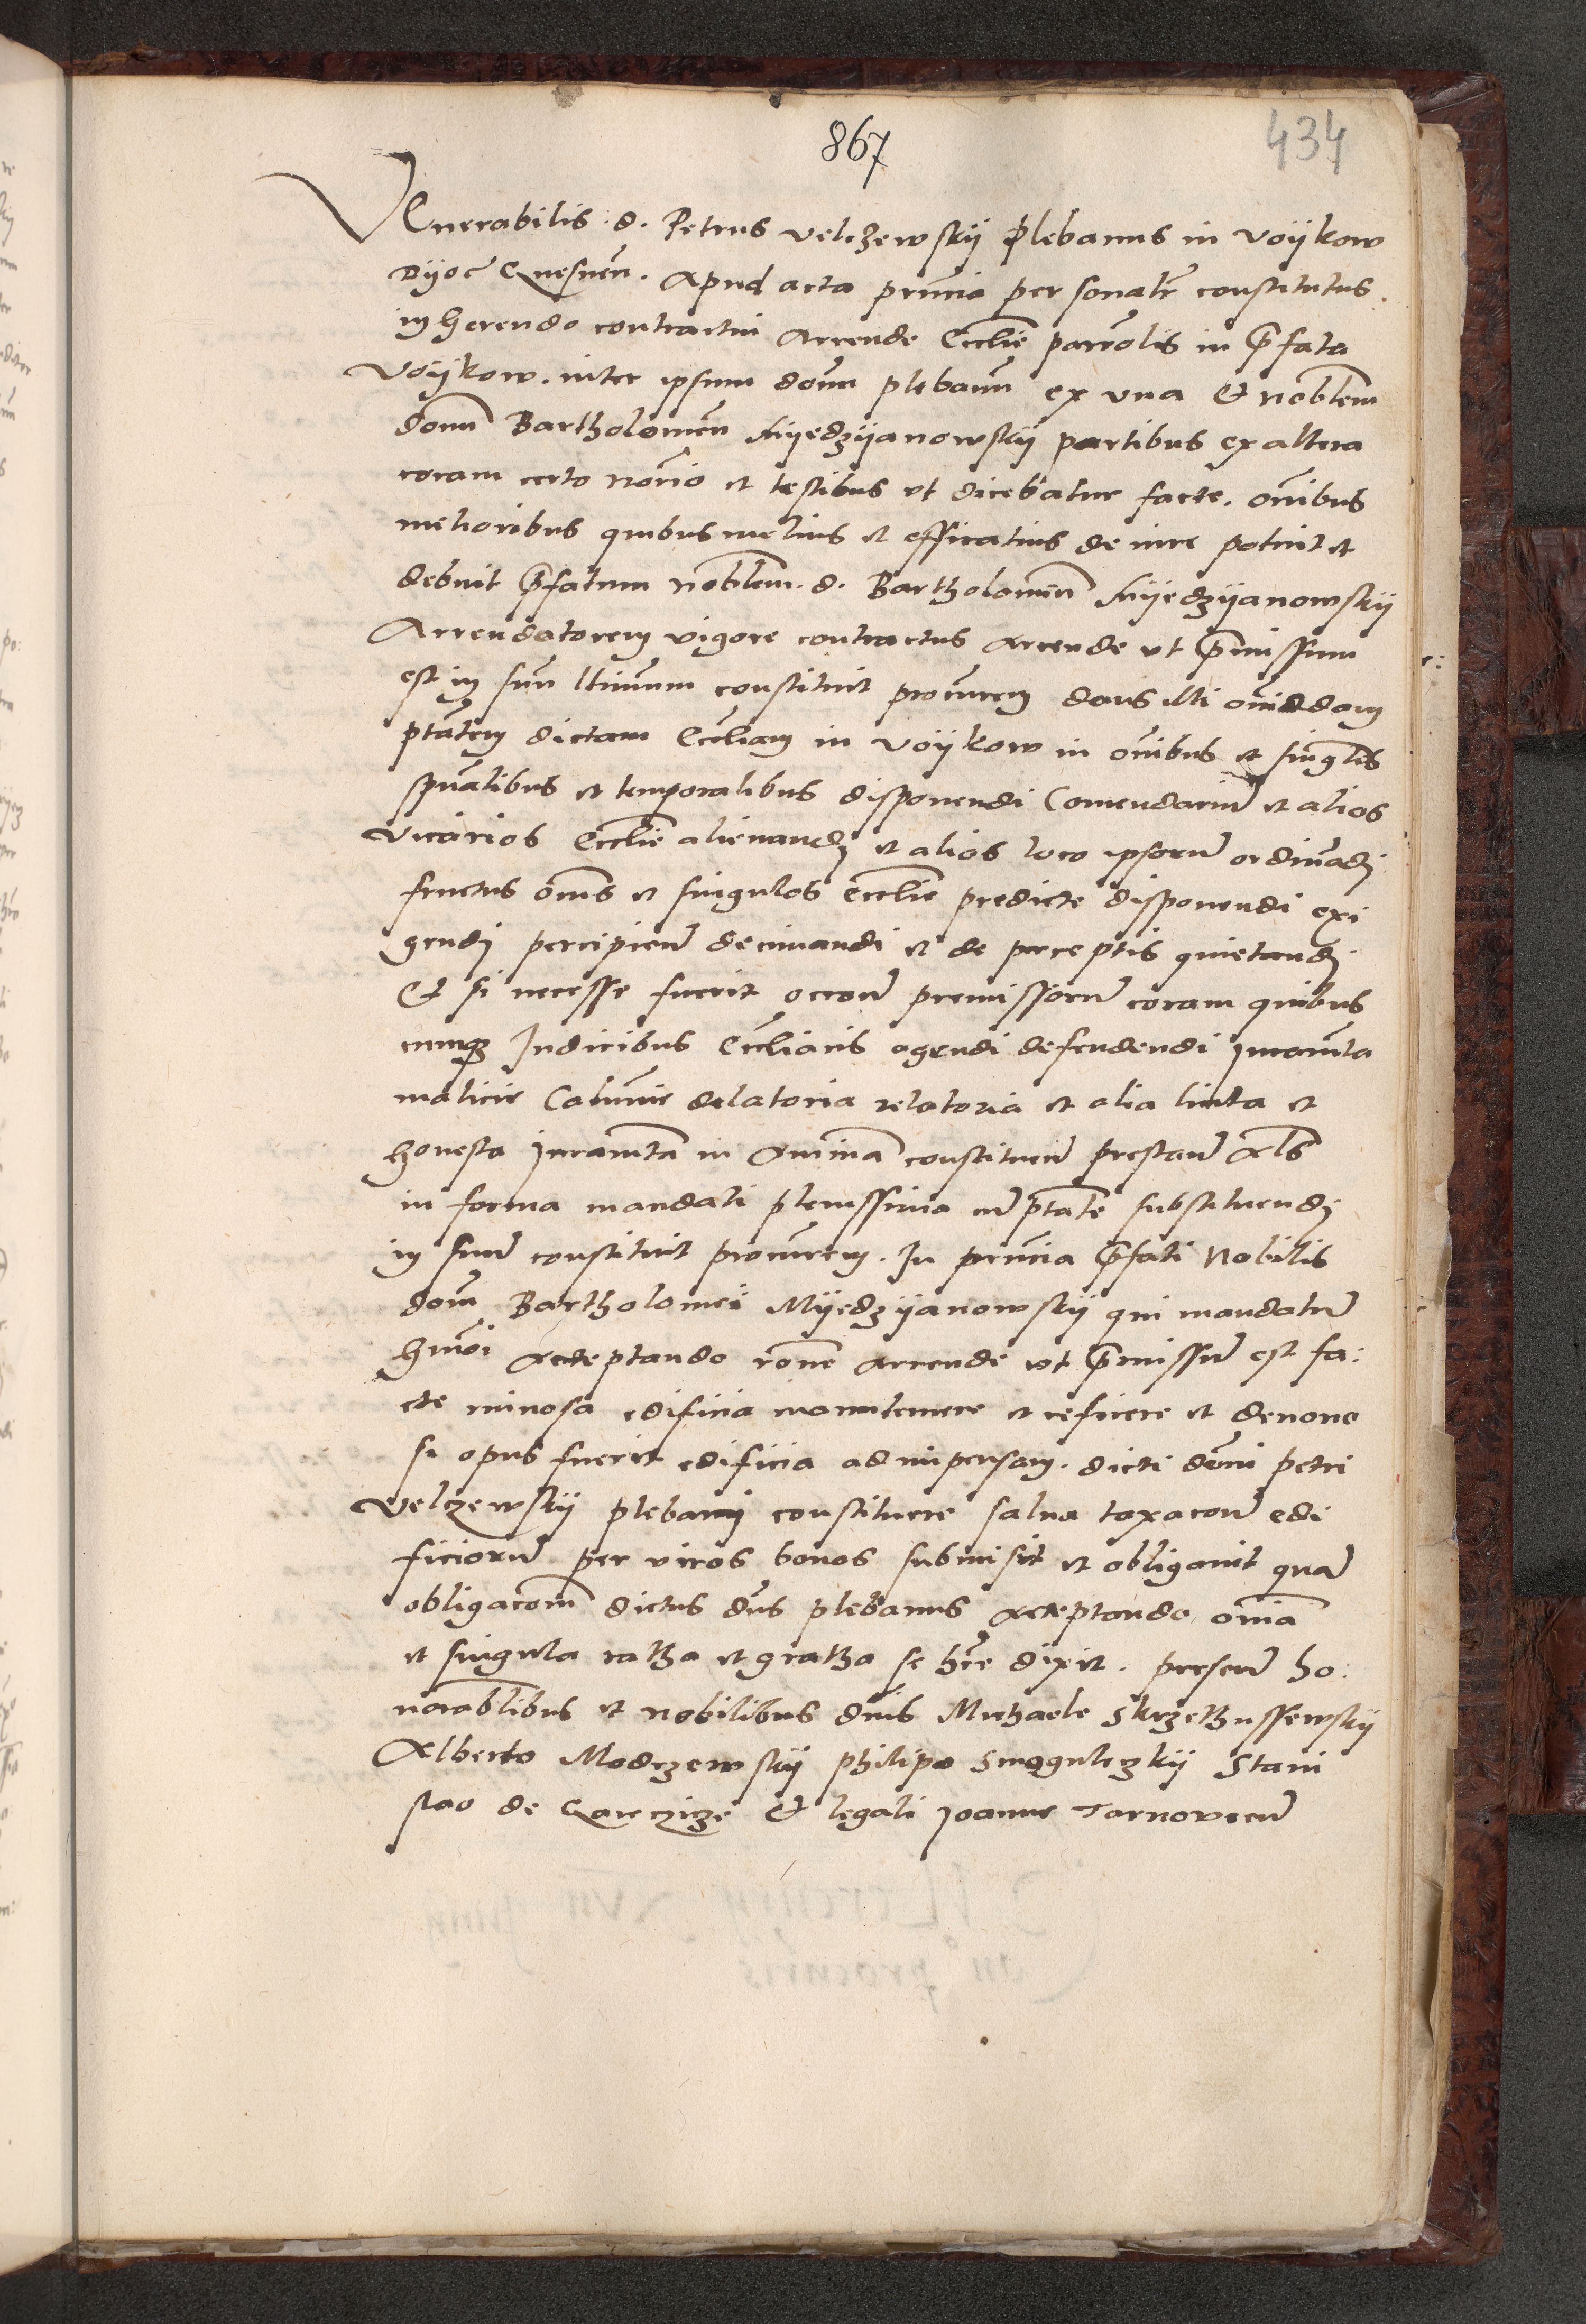 867
434
Venerabilis .d. Petrus velczewskij plebanus in voijkow
Dijoc Gnesnen̄. Apud acta pn̄tia personalr̄ constitutus.
inherendo contractui Arrende Eccl̄ie parrōlis in p̄fata
voijkow. inter ipsum dom̄ plebanū ex vna Et nob̄lem
domū Bartholomeū Mijedzijanowskij partibus ex altera
coram certo not̄rio et testibus vt dicebatur facte. om̄ibus
melioribus quibus melius et efficatius de iure potuit et
debuit p̄fatum nob̄lem .d. Bartholomeū Mijedzijanowskij
Arrendatorem vigore contractus Arrende vt p̄missum
est in suū l̄timum constituit procur̄em dans illi om̄imodam
ptātem dictam Eccl̄iam in voijkow in om̄ibus et singlis
spūalibus et temporalibus disponendi Comendariū et alios
vicarios Eccl̄ie alienandj et alios loco ipsorū ordinādj
fructus om̄s et singulos Eccl̄ie predicte disponendi exi
gendj percipien̄ decimandi et de perceptis quietandj
Et si necesse fuerit occōne premissorū coram quibus
cumq; Iudicibus Eccl̄iacis agendi defendendi Iuram̄ta
malicie Calum̄ie delatoria relatoria et alia licita et
honesta Iuram̄ta in Animā constituen̄ prestan̄ Al̄s
in forma mandati plenissima cū ptāte substituendj
in suū constituit procur̄em. In pn̄tia p̄fati Nobilis
dom̄ Bartholomei Mijedzijanowskij qui mandatū
hm̄oi acceptando rōne arrende vt p̄missū est fa:
cte ruinosa edificia manutenere et reficere et denouo
si opus fuerit edificia ad impensam. dicti dom̄i petri
velczewskij plebani constituere salua taxacōne edi
ficiorū per viros bonos submisit et obligauit quā
obligacōem dictus dn̄s plebanus acceptando om̄ia
et singula ratha et gratha se hr̄e dixit. presen̄ ho:
norab̄libus et nobilibus dn̄is Michaele Skrzethussewskij
Alberto Modrzewskij philipo Smoguleczkij Stani
slao de Q Et legali Joanne Tarnovecen̄